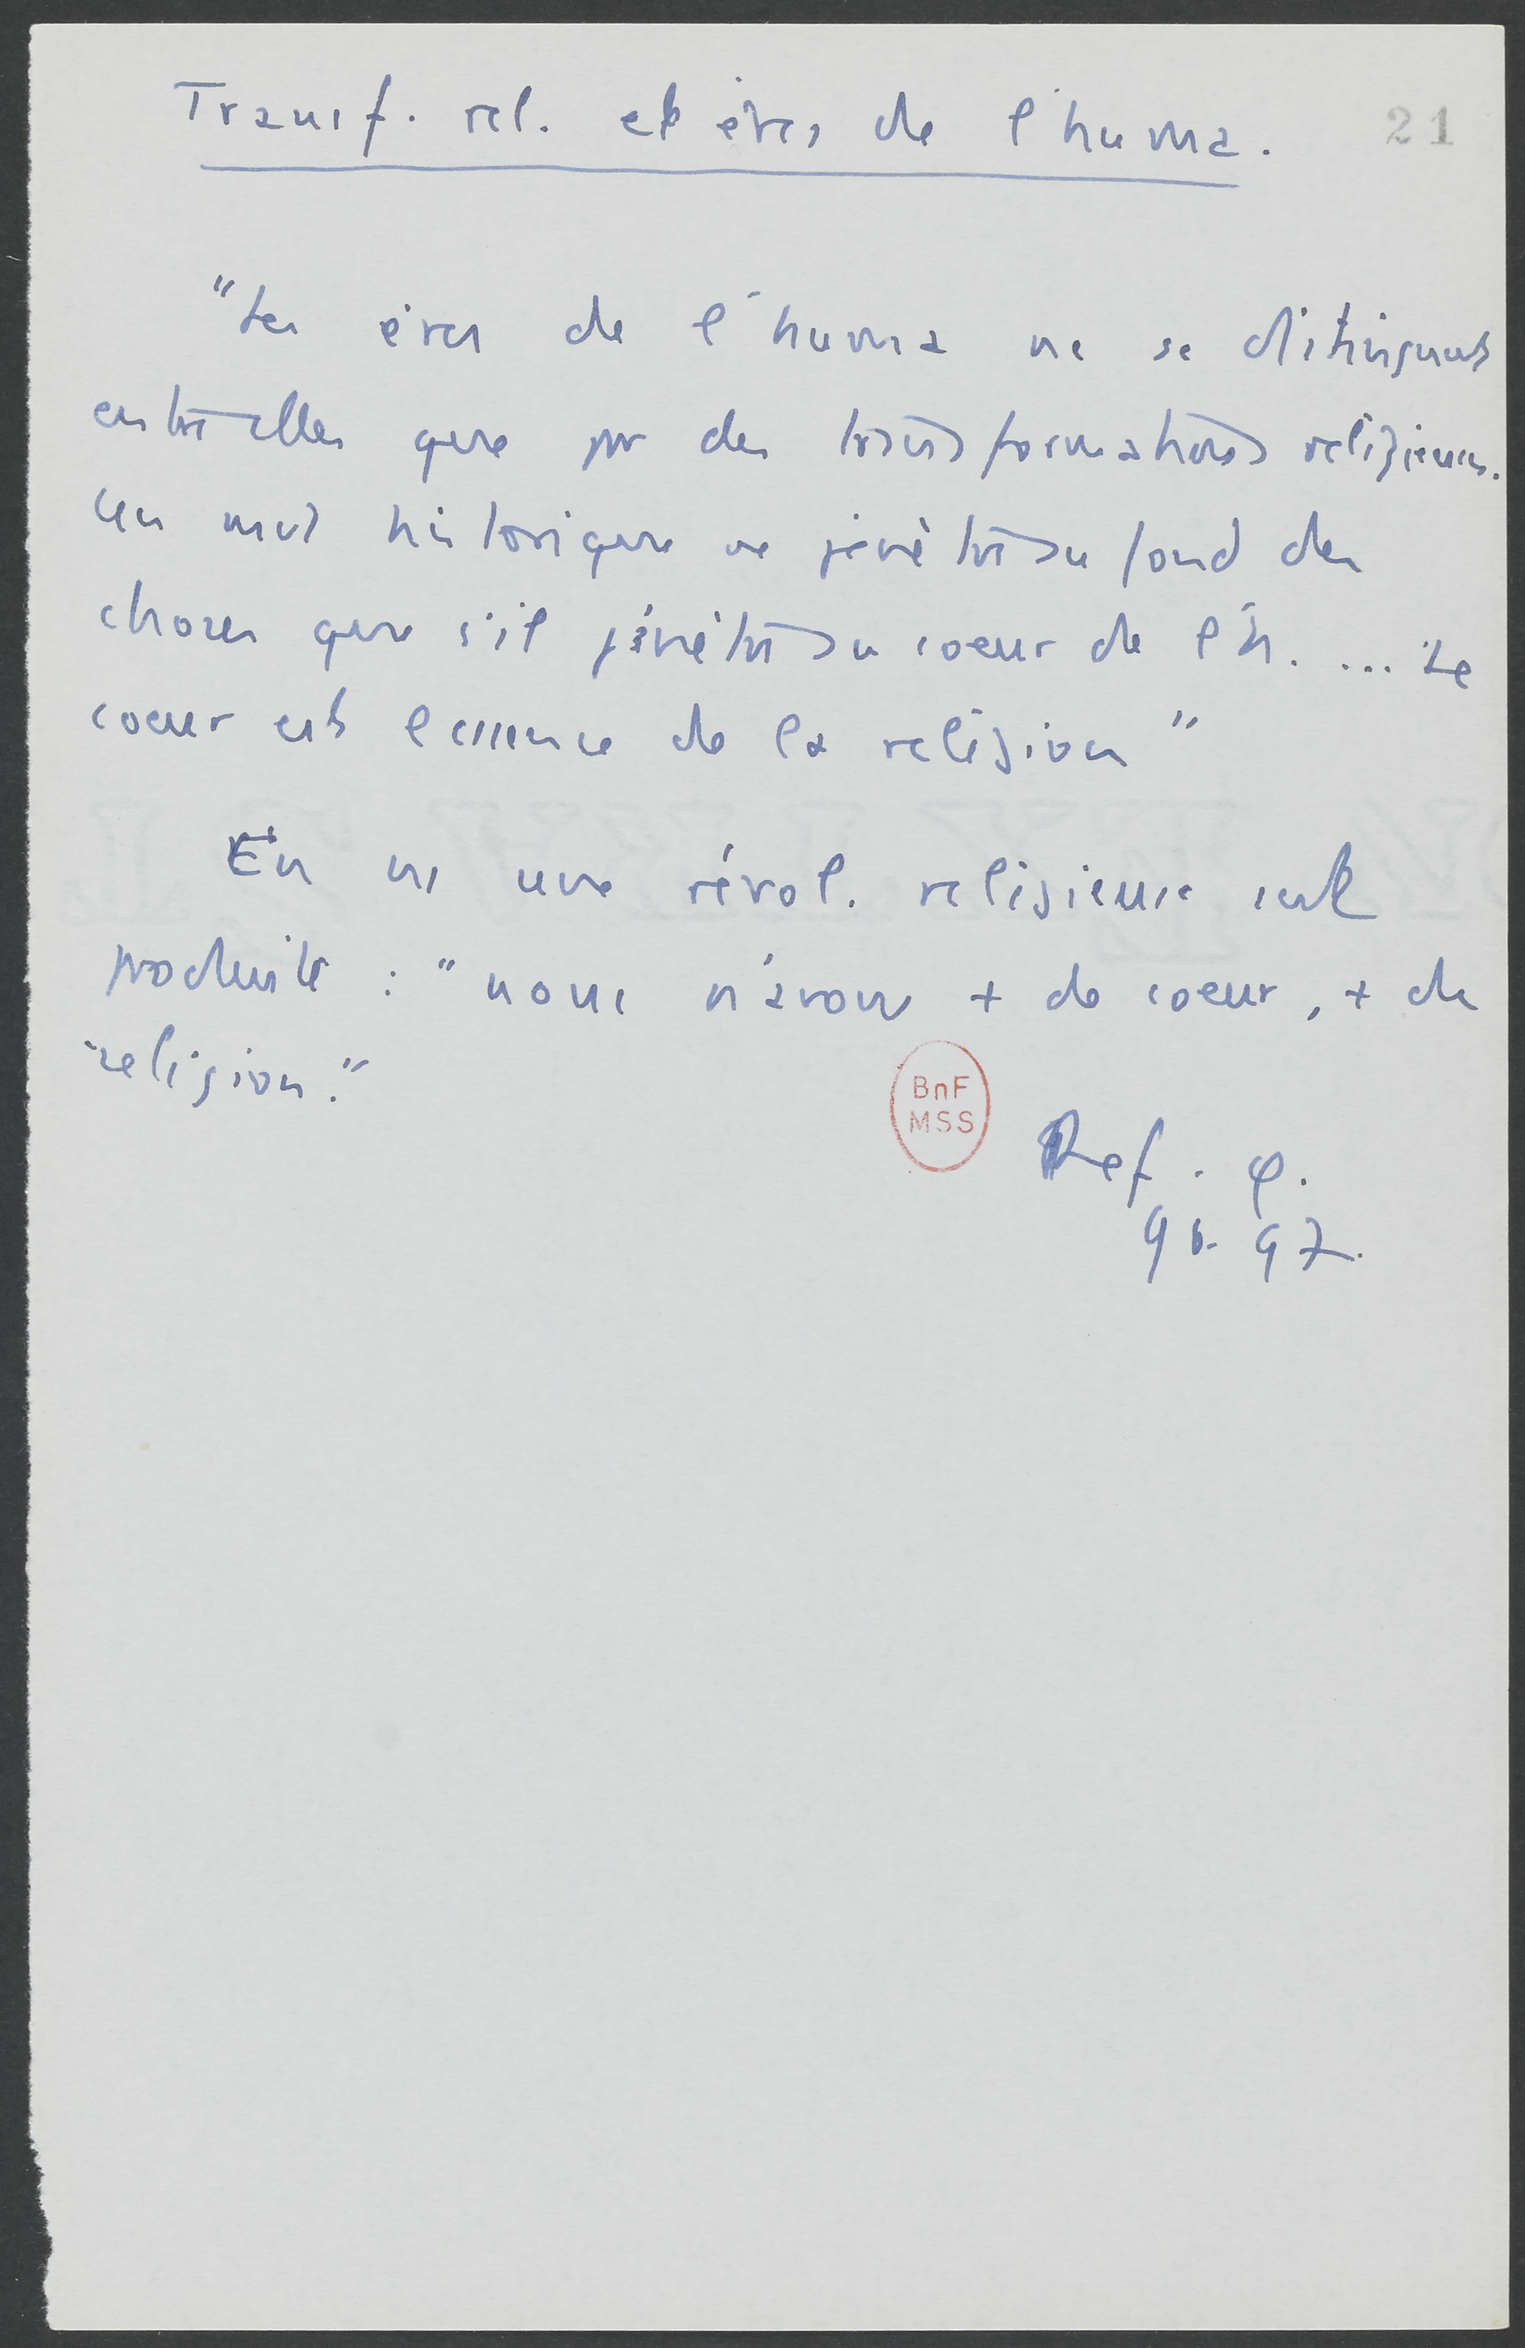 Transf. rel. et ères de l'huma.
21
"Les ères de l'huma ne se distinguent
entre elles que par des transformations religieuses.
Un mvt historique ne pénètre au fond des
choses que s'il pénètre au coeur de l'h. ... Le
coeur est l'essence de la religion"
En ns une révol. religieuse s'est
produite : "nous n'avons + de coeur, + de
religion."
BnF
MSS
Ref. φ.
96-97.